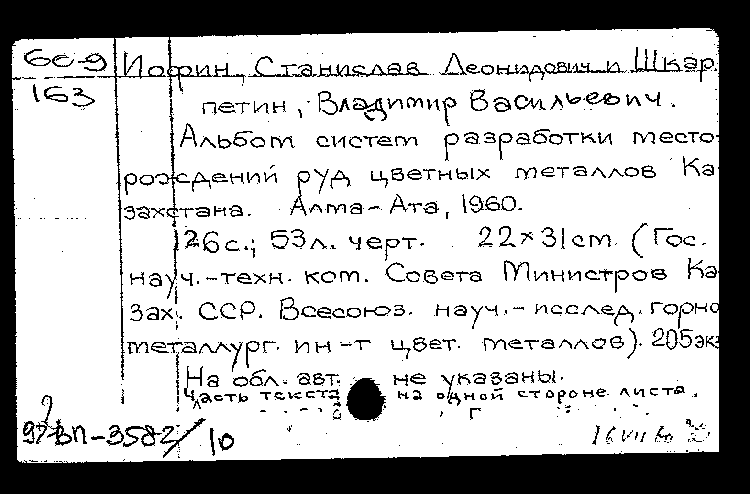 6с-9 Иофин, Станислав Леонидович и Шкар
163
петин, Владимир Васильевич.
Альбом систем разработки место-
рождений руд цветных металлов Ка
захстана. Алма-Ата, 1960.
126с.; 53л. черт. 22×31см (Гос.
науч.-техн. ком. Совета Министров Ка
зах. ССР. Всесоюз. науч.-исслед. горно
металлург. ин-т цвет. металлов). 205экз
На обл. авт. не указаны.
Часть текста на одной стороне листа.
92ВП-3582/10
16 VII 60